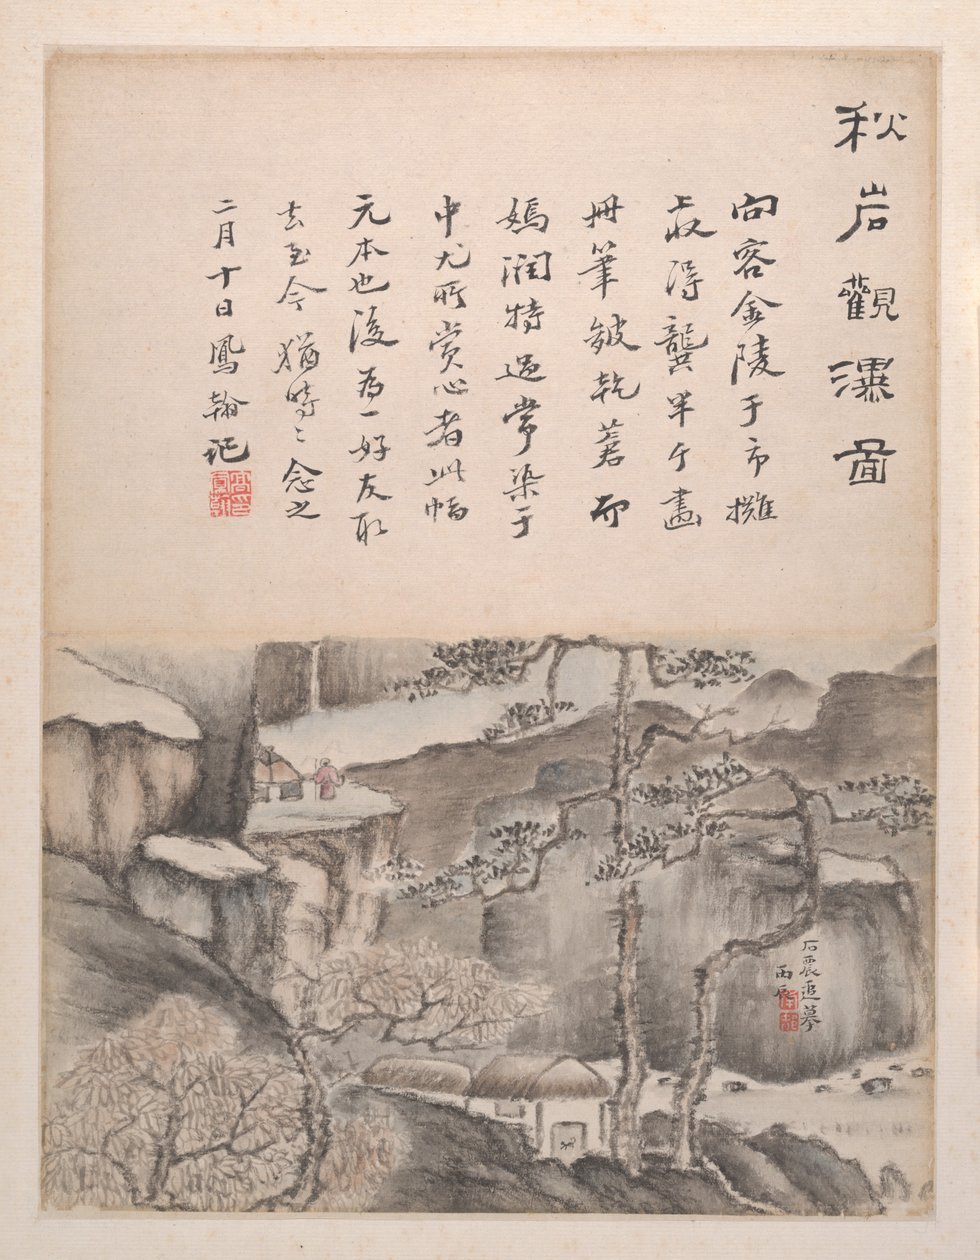 秋岩觀瀑圖
向客金陵于市攤
收得龔半千畫
冊筆皴乾蒼而
嫣潤特過常染于
中尤所賞心者此幅
元本也後為一好友取
去至今猶時〻念之
二月十日鳳翰記
高印鳳翰
石農追摹
丙辰